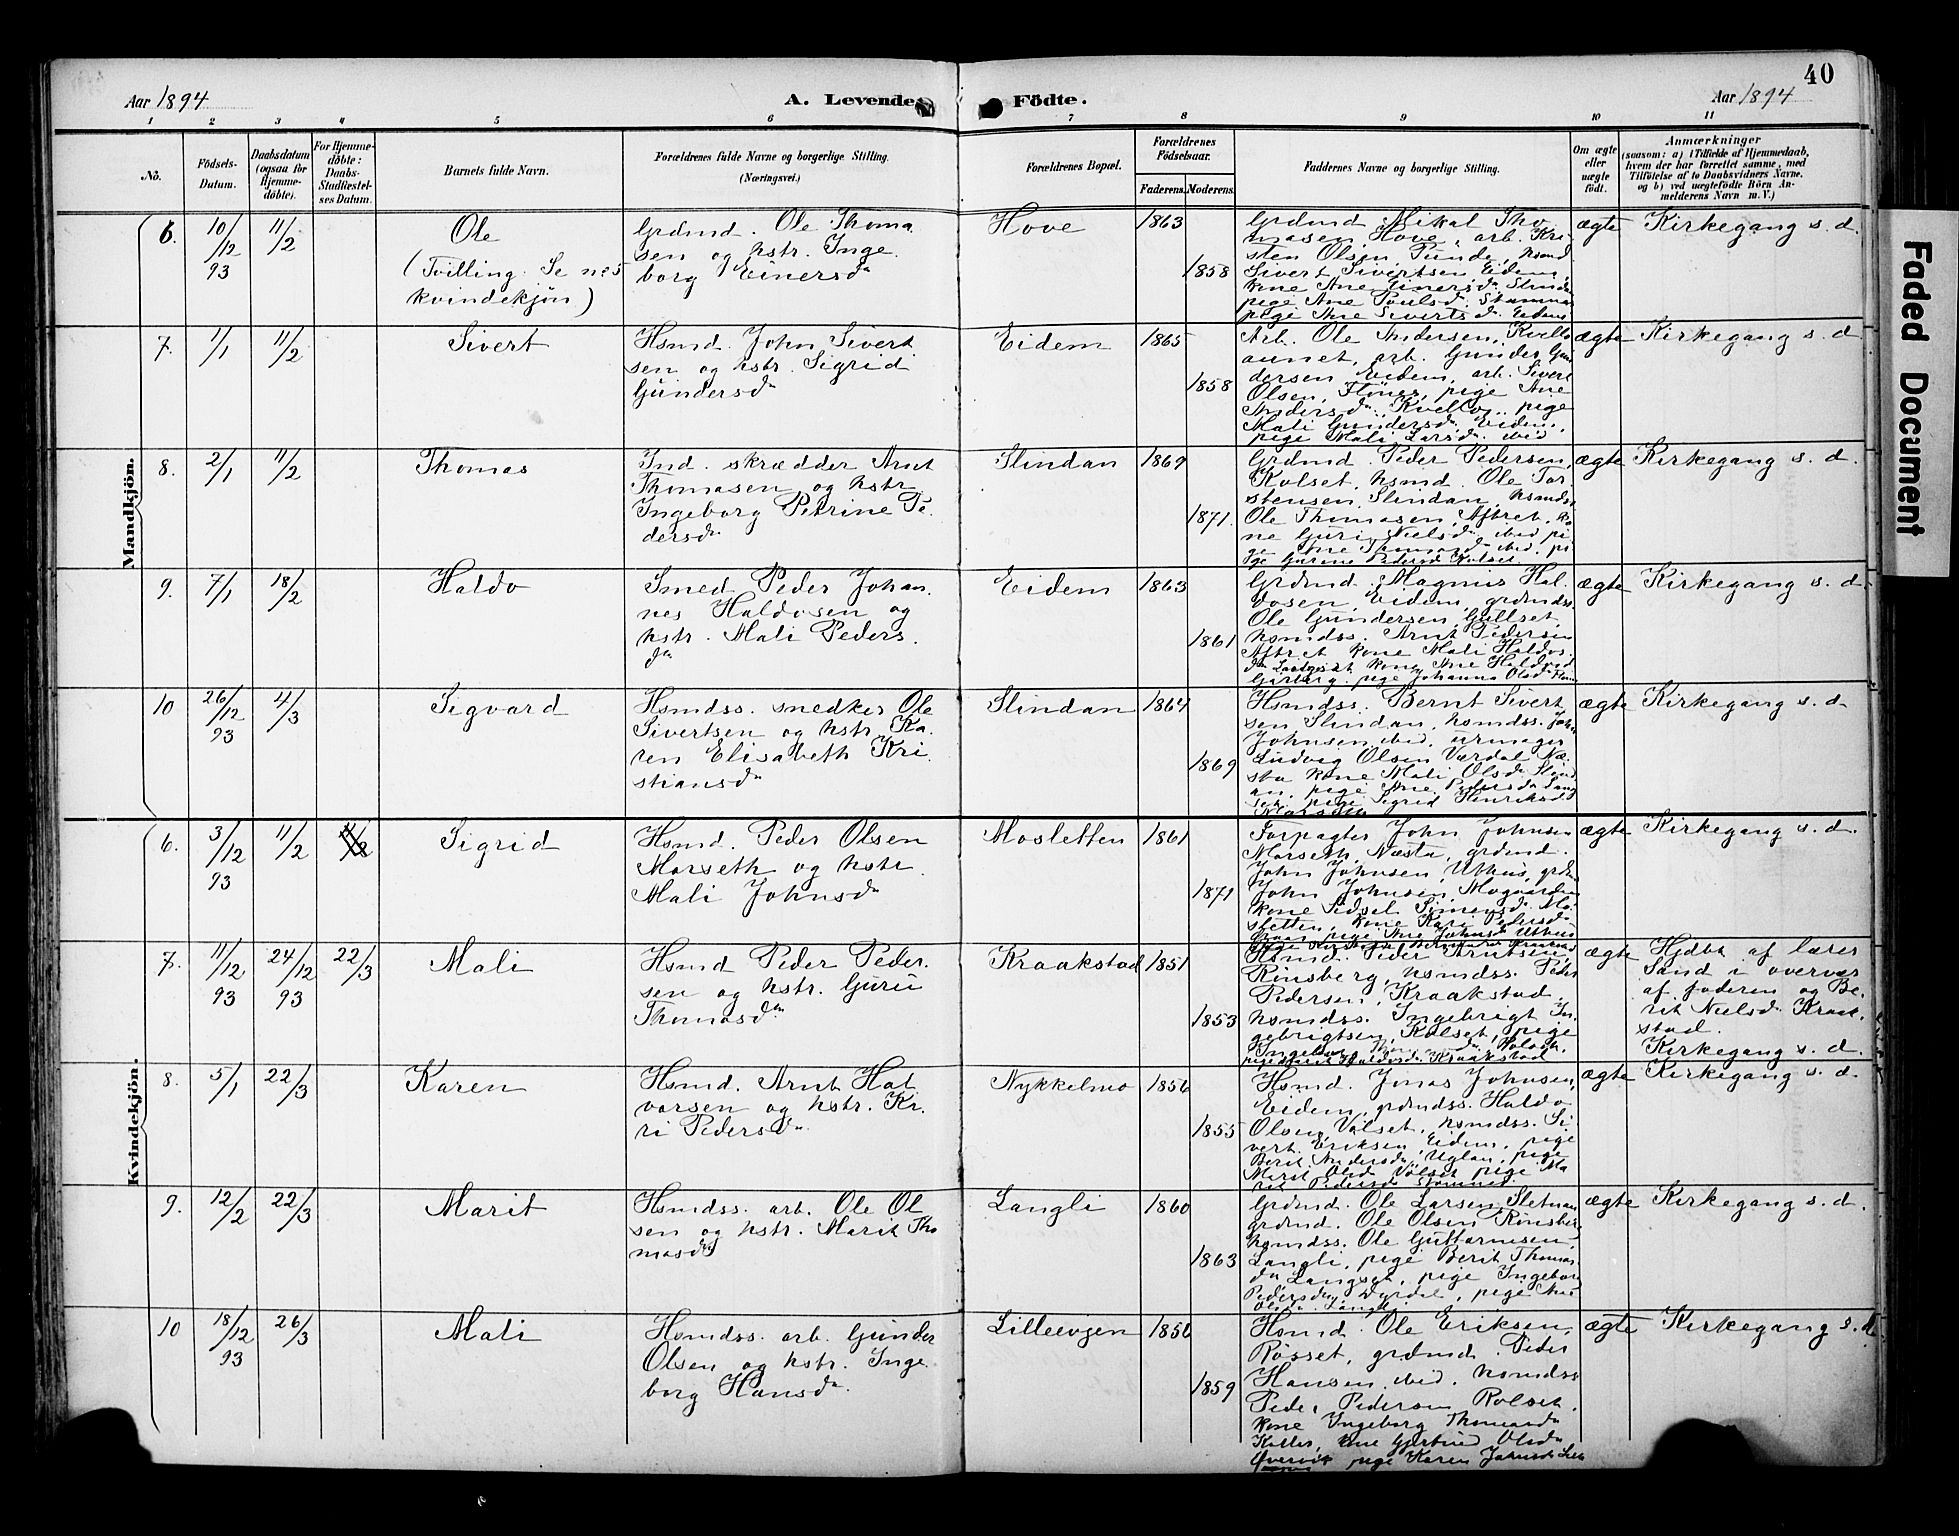 40
Aar 1894
A. Levende
Födte.
Aar 1894
1 2 3 4 5 6 7 8 9 10 11
No.
Födsels-
Datum.
Daabsdatum
(ogsaa for
Hjemme-
döbte).
For Hjemme-
döbte:
Daabs-
Stadfæstel-
ses Datum.
Barnets fulde Navn.
Forældrenes fulde Navne og borgerlige Stilling.
(Næringsvei.)
Forældrenes Bopæl.
Forældrenes
Födselsaar.
Faderens. Moderens.
Faddernes Navne og borgerlig Stilling.
Om ægte
eller
uægte
födt.
Anmærkninger
(saasom: a) i Tilfælde af Hjemmedaab,
hvem der har forrettet samme, med
Tilföielse af to Daabsvidners Navne,
og b) ved uægtefödte Börn An-
melderens Navn m. V.)
Mandkjön.
6. 10/12 93 11/2
Ole
(Tvilling. Se no 5
kvindekjön)
Grdmd. Ole Thoma
sen og hstr. Inge
borg Einersdr
Hove
1863
1858
Grdmd Mikal Tho
masen Hove, arb. Kri
sten Olsen, hsmd
Sivert Sivertsen Eidem,
kone Ane Einersdr
pige Ane Poulsd.
pige Ane Sivertsdr Eidem
ægte
Kirkegang s. d.
7. 1/1 11/2
Sivert
Hsmd. John Sivert
sen og hstr. Sigrid
Gundersdr
Eidem
1865
1858
Arb. Ole Andersen, Kvello
aunet, arb. Gunder Gun
dersen Eidem, arb. Sivert
Olsen, Flönes, pige Ane
Andersdr, Kvello, pige
Mali Gundersdr Eidem,
pige Mali Larsdr ibid
ægte
Kirkegang s. d
8. 2/1 11/2
Thomas
Ind. skrædder Arnt
Thomasen og hstr
Ingeborg Petrine Pe
dersdr
Slindan
1869
1871.
Grdmd. Peder Pedersen,
Kolset, hsmd. Ole Tor
stensen, Slindan, hsmdss
Ole Thomasen, Aftret, ko
ne Guri Nielsdr ibid pi
ge Ane ibid, pi
ge Gurine Pedersdr Kolset
ægte
Kirkegang s. d.
9. 7/1 18/2
Haldo
Smed Peder Johan
nes Haldosen og
hstr. Mali Peders
dr
Eidem
1863
1861
Grdmd. Magnus Hal
dosen, Eidem, grdmdss.
Ole Gundersen, Gullset,
hsmdss. Arnt Pedersen
Aftret kone Mali Haldos
dr kone Ane Haldosd
pige Johanna Olsdr
ægte
Kirkegang s. d.
10 26/12 93 4/3
Sigvard
Hsmdss. snedker Ole
Sivertsen og hstr. Ka
ren Elisabeth Kri
stiansdr
Slindan
1864
1869
Hsmdss. Bernt Sivert
sen Slindan, hsmdss. John
Johnsen ibid, urmager
Ludvig Olsen Værdal Næ
sta kone Mali Olsdr Slind
an, pige Ane Pedersdr
pige Sigrid Henriksd
Marseth
ægte
Kirkegang s. d
Kvindekjön.
6. 3/12 93 11/2 11/2
Sigrid
Hsmd. Peder Olsen
Marseth og hstr.
Mali Johnsdr
Mosletten
1861
1871
Forpagter John Johnsen
Marseth, Næsta, grdmd.
John Johnsen, Uthus, grdm
John Johnsen, Mogaarden
kone Sidsel Simensdr Mo
sletten, kone Kari Pedersdr
pige Ane Johnsdr Uthus
ægte
Kirkegang s. d.
7. 11/12 93 24/12 93 22/3
Mali
Hsmd Peder Peder
sen og hstr. Guru
Thomasdr
Kraakstad
1851
1853
Hsmd. Peder Arntsen,
Rinsberg, hsmdss. Peder
Pedersen, Kraakstad,
hsmdss. Ingebrigt In
gebrigtsen, Kolset, pige
Ingeborg
Kraakstad
ægte
Hjdbt. af lærer
Sand i overvær
af faderen og Be
rit Nielsdr Kraak
stad.
Kirkegang s. d.
8. 5/1 22/3
Karen
Hsmd. Arnt Hal
vorsen og hstr. Ka
ri Pedersdr
Nykkelmo
1856
1855
Hsmd. Jonas Johnsen,
Eidem, grdmdss. Haldo
Olsen, Volset, hsmdss. Si
vert Eriksen Eidem, pige
Berit Andersdr, Uglan, pige
Marit Olsdr Volset pige Ma
rit Pedersdr
ægte
Kirkegang s. d.
9. 12/2 22/3
Marit
Hsmdss. arb. Ole Ol
sen og hstr. Marit Tho
masdr
Langli
1860
1863
Grdmd. Ole Larsen, Sletman
grdmd. Ole Olsen Rinsber
hsmdss. Ole Guttormsen,
Langli, pige Berit Thomas
dr Langset, pige Ingebor
Pedersdr, Dyrdal, pige Ane
Olsdr Langli
ægte
Kirkegang s. d.
10 18/12 93 26/3
Mali
Hsmdss. arb. Gunder
Olsen og hstr. Inge
borg Hansdr.
Lilleevjen
1856
1859
Hsmd. Ole Eriksen,
Rosset, grdmd. Peder
Hansen ibid, hsmdss
Peder Pedersen Rolset.
kone Ingeborg Thomasdr
kone Gjertrud Olsdr
pige Karen Johnsdr
ægte
Kirkegang s. d.
Faded Document